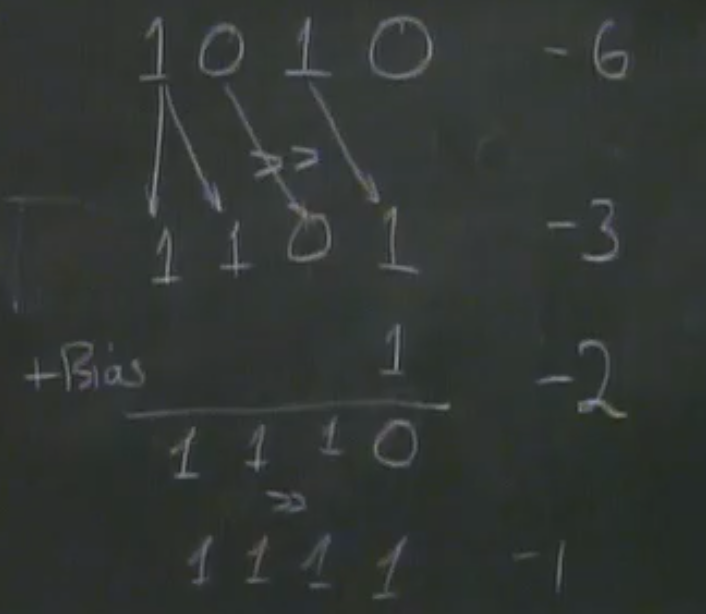 1 0 1 0 -6
>>
1 1 0 1 -3
+Bias 1 -2
1 1 1 0
>>
1 1 1 1 -1